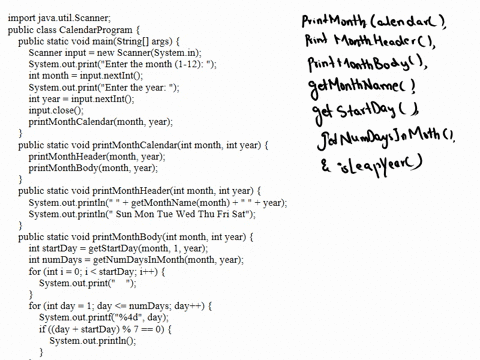 import java.util.Scanner;
public class CalendarProgram {
public static void main(String[] args) {
Scanner input = new Scanner(System.in);
System.out.print("Enter the month (1-12): ");
int month = input.nextInt();
System.out.print("Enter the year: ");
int year = input.nextInt();
input.close();
printMonthCalendar(month, year);
}
public static void printMonthCalendar(int month, int year) {
printMonthHeader(month, year);
printMonthBody(month, year);
}
public static void printMonthHeader(int month, int year) {
System.out.println(" " + getMonthName(month) + " " + year);
System.out.println(" Sun Mon Tue Wed Thu Fri Sat");
}
public static void printMonthBody(int month, int year) {
int startDay = getStartDay(month, 1, year);
int numDays = getNumDaysInMonth(month, year);
for (int i = 0; i < startDay; i++) {
System.out.print("    ");
}
for (int day = 1; day <= numDays; day++) {
System.out.printf("%4d", day);
if ((day + startDay) % 7 == 0) {
System.out.println();
}
PrintMonth Calendar(),
Print MonthHeader(),
PrintMonthBody(),
getMonthName()
get StartDay(),
getNumDaysInMoth(),
& isleapYear()